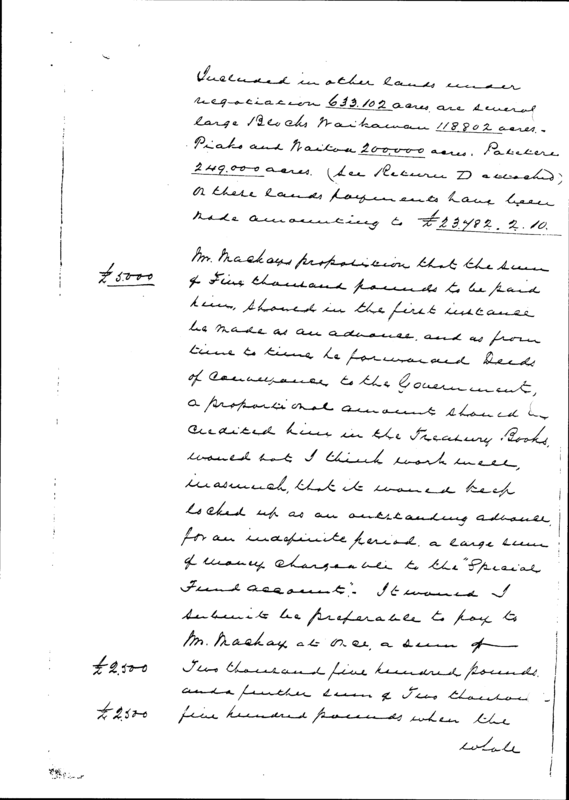 Included in other lands under
negotiation 633.102 acres, are several
large Blocks Waikawau 118802 acres.-
Piako and Waitoa 200,000 acres. Patetere
249.000 acres. (See Return D attached)
On these lands payments have been
made amounting to £23482. 2. 10.
Mr. Mackays proposition that the sum
£5000 of Five thousand pounds to be paid
him, should in the first instance
be made as an advance, and as from
time to time he forwarded Deeds
of Conveyance to the Government,
a proportional amount should be
credited him in the Treasury Books,
would not I think work well,
inasmuch, that it would keep
locked up as an outstanding advance,
for an indefinite period, a large sum
of money chargeable to the "Special
Fund Account".- It would I
submit be preferable to pay to
Mr. Mackay at once, a sum of
£2,500 Two thousand five hundred pounds,
and a further sum of Two thousand
£2500 five hundred pounds when the
whole